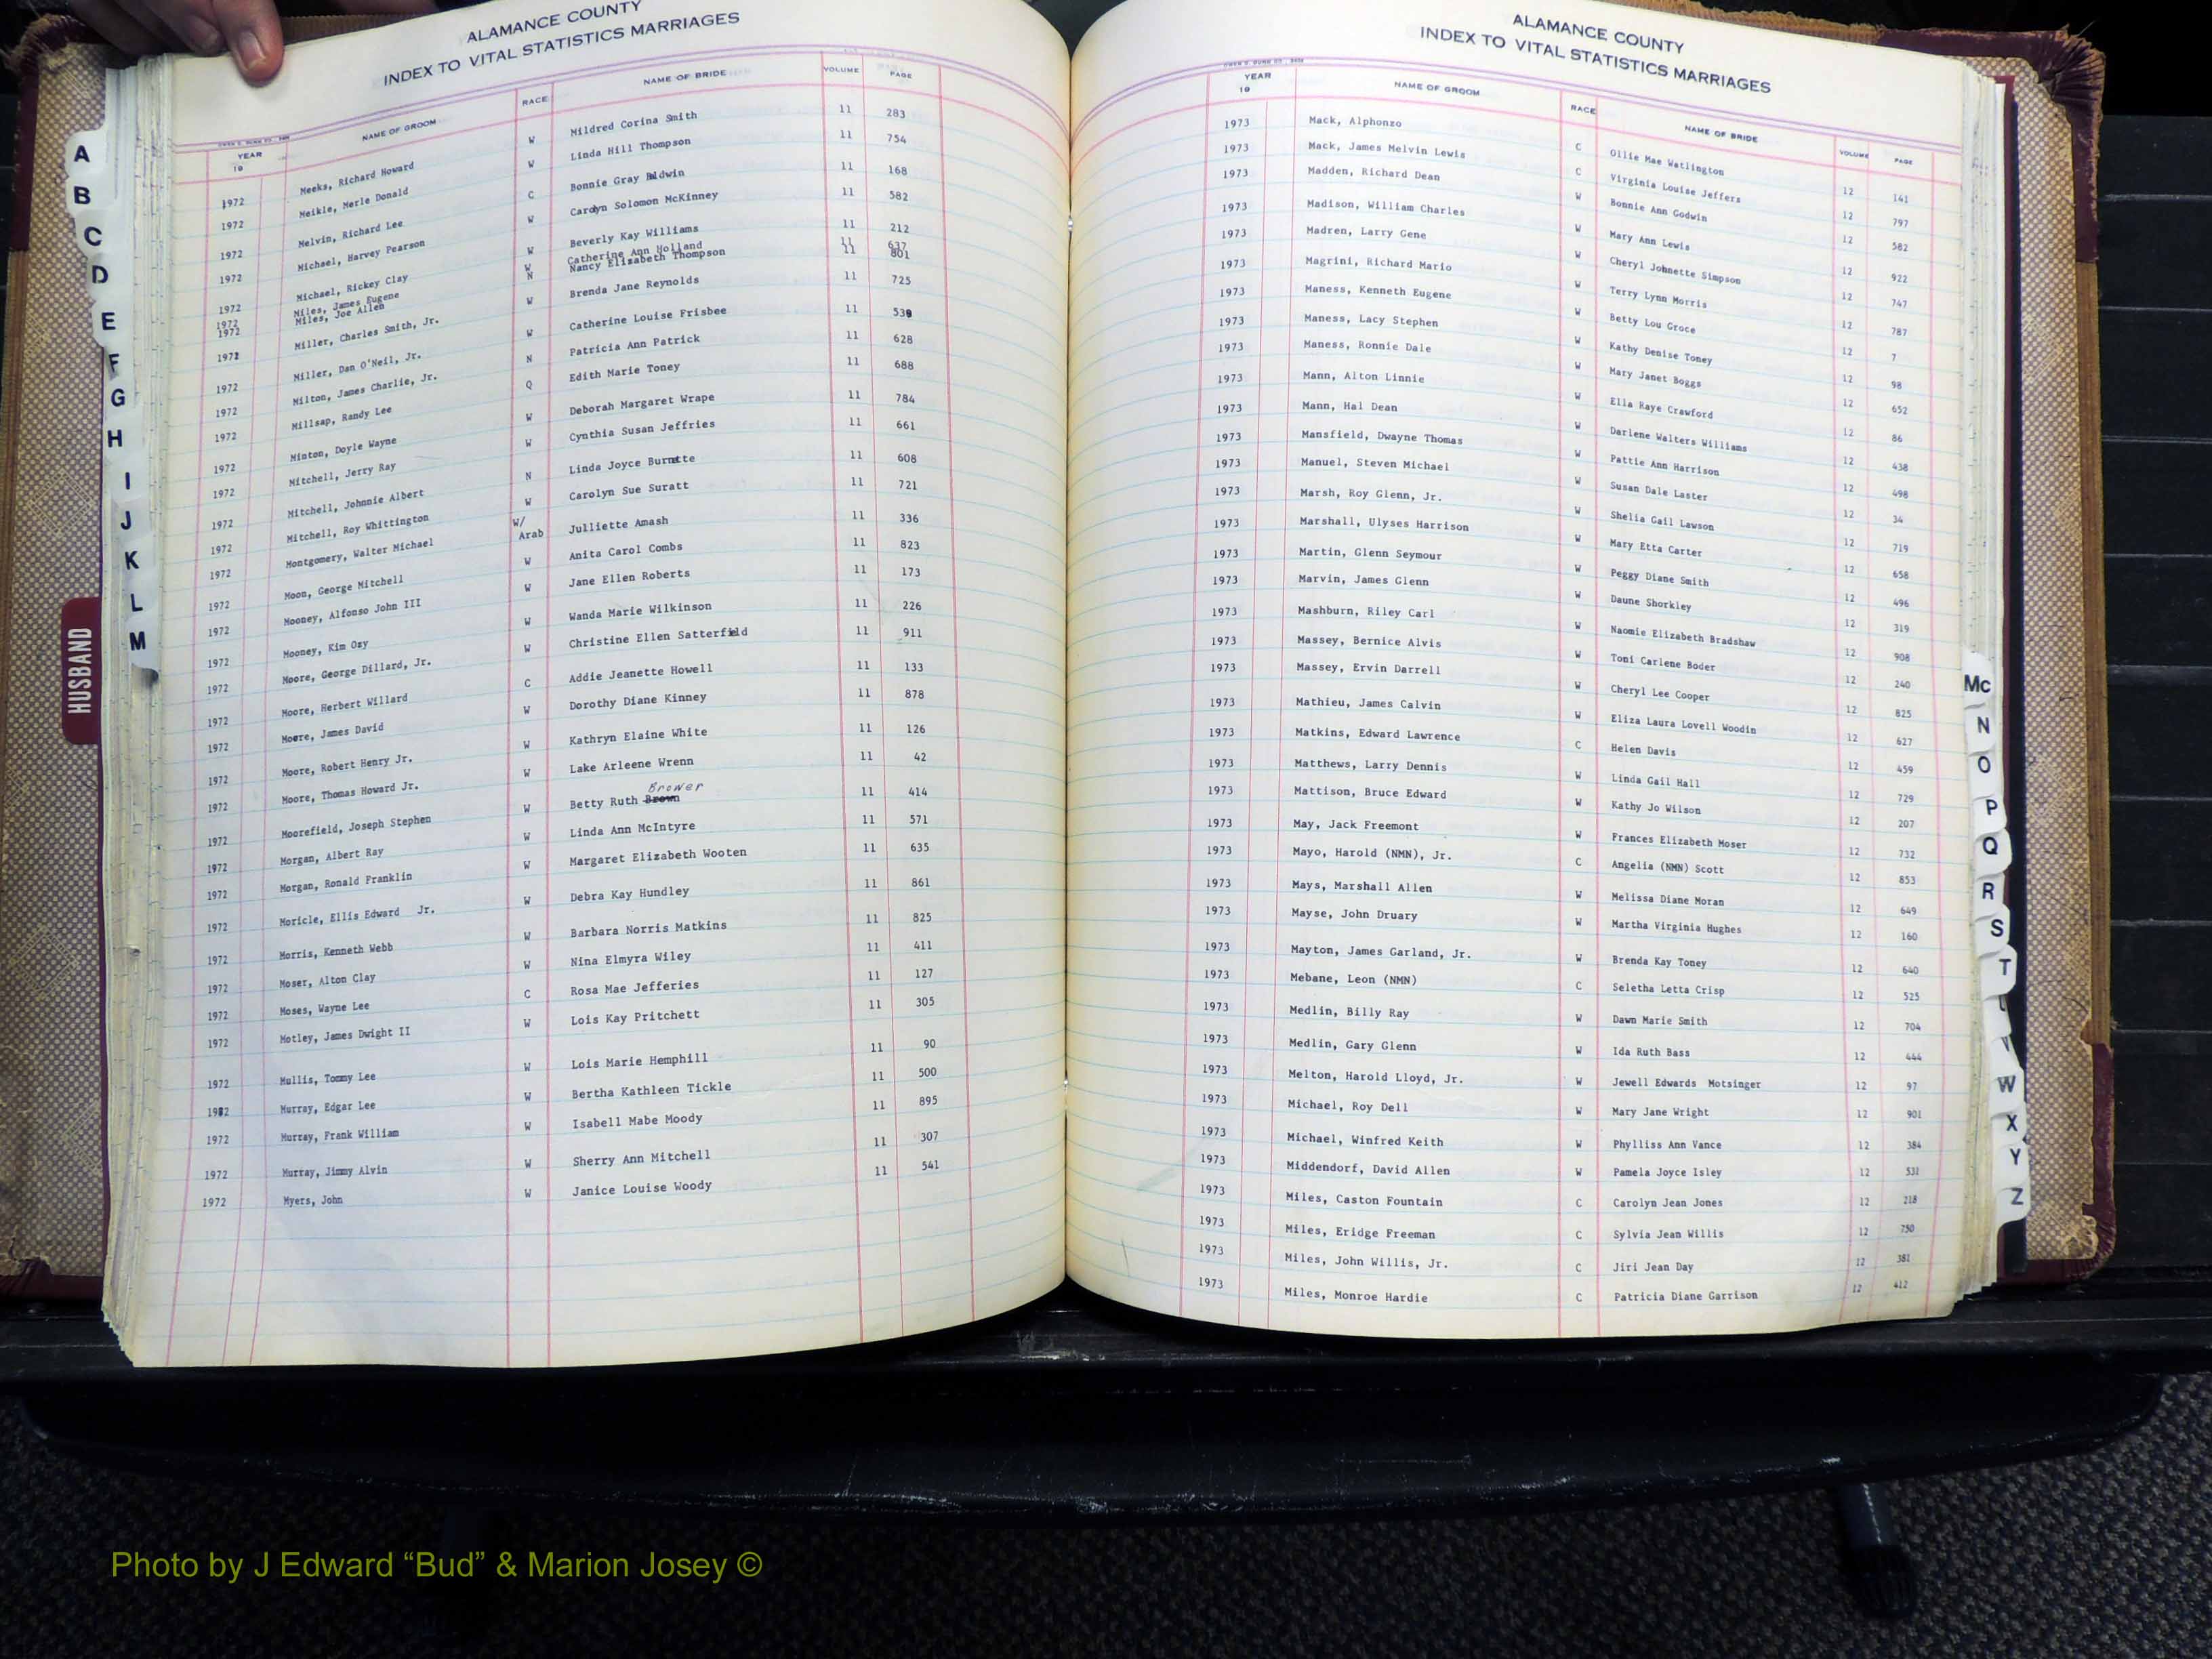 ALAMANCE COUNTY
INDEX TO VITAL STATISTICS MARRIAGES
YEAR 19 NAME OF GROOM RACE NAME OF BRIDE VOLUME PAGE
1972 Meeks, Richard Howard W Mildred Corina Smith 11 283
1972 Meikle, Merle Donald W Linda Hill Thompson 11 754
1972 Melvin, Richard Lee C Bonnie Gray Baldwin 11 168
1972 Michael, Harvey Pearson W Carolyn Solomon McKinney 11 582
1972 Michael, Rickey Clay W Beverly Kay Williams 11 212
1972 Miles, James Eugene W Catherine Ann Holland 11 637
1972 Miles, Joe Allen N Nancy Elizabeth Thompson 11 801
1972 Miller, Charles Smith, Jr. W Brenda Jane Reynolds 11 725
1972 Miller, Dan O'Neil, Jr. W Catherine Louise Frisbee 11
1972 Milton, James Charlie, Jr. N Patricia Ann Patrick 11 628
1972 Millsap, Randy Lee Q Edith Marie Toney 11 688
1972 Minton, Doyle Wayne W Deborah Margaret Wrape 11 784
1972 Mitchell, Jerry Ray W Cynthia Susan Jeffries 11 661
1972 Mitchell, Johnnie Albert N Linda Joyce Burnette 11 608
1972 Mitchell, Roy Whittington W Carolyn Sue Suratt 11 721
1972 Montgomery, Walter Michael W/ Arab Julliette Amash 11 336
1972 Moon, George Mitchell W Anita Carol Combs 11 823
1972 Mooney, Alfonso John III W Jane Ellen Roberts 11 173
1972 Mooney, Kim Ozy W Wanda Marie Wilkinson 11 226
1972 Moore, George Dillard, Jr. W Christine Ellen Satterfield 11 911
1972 Moore, Herbert Willard C Addie Jeanette Howell 11 133
1972 Moore, James David W Dorothy Diane Kinney 11 878
1972 Moore, Robert Henry Jr. W Kathryn Elaine White 11 126
1972 Moore, Thomas Howard Jr. W Lake Arleene Wrenn 11 42
1972 Moorefield, Joseph Stephen W Betty Ruth Brown Brower 11 414
1972 Morgan, Albert Ray W Linda Ann McIntyre 11 571
1972 Morgan, Ronald Franklin W Margaret Elizabeth Wooten 11 635
1972 Moricle, Ellis Edward Jr. W Debra Kay Hundley 11 861
1972 Morris, Kenneth Webb W Barbara Norris Matkins 11 825
1972 Moser, Alton Clay W Nina Elmyra Wiley 11 411
1972 Moses, Wayne Lee C Rosa Mae Jefferies 11 127
1972 Motley, James Dwight II W Lois Kay Pritchett 11 305
1972 Mullis, Tommy Lee W Lois Marie Hemphill 11 90
1972 Murray, Edgar Lee W Bertha Kathleen Tickle 11 500
1972 Murray, Frank William W Isabell Mabe Moody 11 895
1972 Murray, Jimmy Alvin W Sherry Ann Mitchell 11 307
1972 Myers, John W Janice Louise Woody 11 541
ALAMANCE COUNTY
INDEX TO VITAL STATISTICS MARRIAGES
YEAR 19 NAME OF GROOM RACE NAME OF BRIDE VOLUME PAGE
1973 Mack, Alphonzo C Ollie Mae Watlington 12 141
1973 Mack, James Melvin Lewis C Virginia Louise Jeffers 12 797
1973 Madden, Richard Dean W Bonnie Ann Godwin 12 582
1973 Madison, William Charles W Mary Ann Lewis 12 922
1973 Madren, Larry Gene W Cheryl Johnette Simpson 12 747
1973 Magrini, Richard Mario W Terry Lynn Morris 12 787
1973 Maness, Kenneth Eugene W Betty Lou Groce 12 7
1973 Maness, Lacy Stephen W Kathy Denise Toney 12 98
1973 Maness, Ronnie Dale W Mary Janet Boggs 12 652
1973 Mann, Alton Linnie W Ella Raye Crawford 12 86
1973 Mann, Hal Dean W Darlene Walters Williams 12 438
1973 Mansfield, Dwayne Thomas W Pattie Ann Harrison 12 498
1973 Manuel, Steven Michael W Susan Dale Laster 12 34
1973 Marsh, Roy Glenn, Jr. W Shelia Gail Lawson 12 719
1973 Marshall, Ulyses Harrison W Mary Etta Carter 12 658
1973 Martin, Glenn Seymour W Peggy Diane Smith 12 496
1973 Marvin, James Glenn W Daune Shorkley 12 319
1973 Mashburn, Riley Carl W Naomie Elizabeth Bradshaw 12 908
1973 Massey, Bernice Alvis W Toni Carlene Boder 12 240
1973 Massey, Ervin Darrell W Cheryl Lee Cooper 12 825
1973 Mathieu, James Calvin W Eliza Laura Lovell Woodin 12 627
1973 Matkins, Edward Lawrence C Helen Davis 12 459
1973 Matthews, Larry Dennis W Linda Gail Hall 12 729
1973 Mattison, Bruce Edward W Kathy Jo Wilson 12 207
1973 May, Jack Freemont W Frances Elizabeth Moser 12 732
1973 Mayo, Harold (NMN), Jr. C Angelia (NMN) Scott 12 853
1973 Mays, Marshall Allen W Melissa Diane Moran 12 649
1973 Mayse, John Druary W Martha Virginia Hughes 12 160
1973 Mayton, James Garland, Jr. W Brenda Kay Toney 12 640
1973 Mebane, Leon (NMN) C Seletha Letta Crisp 12 525
1973 Medlin, Billy Ray W Dawn Marie Smith 12 704
1973 Medlin, Gary Glenn W Ida Ruth Bass 12 444
1973 Melton, Harold Lloyd, Jr. W Jewell Edwards Motsinger 12 97
1973 Michael, Roy Dell W Mary Jane Wright 12 901
1973 Michael, Winfred Keith W Phylliss Ann Vance 12 384
1973 Middendorf, David Allen W Pamela Joyce Isley 12 531
1973 Miles, Caston Fountain C Carolyn Jean Jones 12 218
1973 Miles, Eridge Freeman C Sylvia Jean Willis 12 750
1973 Miles, John Willis, Jr. C Jiri Jean Day 12 381
1973 Miles, Monroe Hardie C Patricia Diane Garrison 12 412
A
B
C
D
E
F
G
H
I
J
K
L
M
HUSBAND
Mc
N
O
P
Q
R
S
T
V
W
X
Y
Z
Photo by J Edward “Bud” & Marion Josey ©